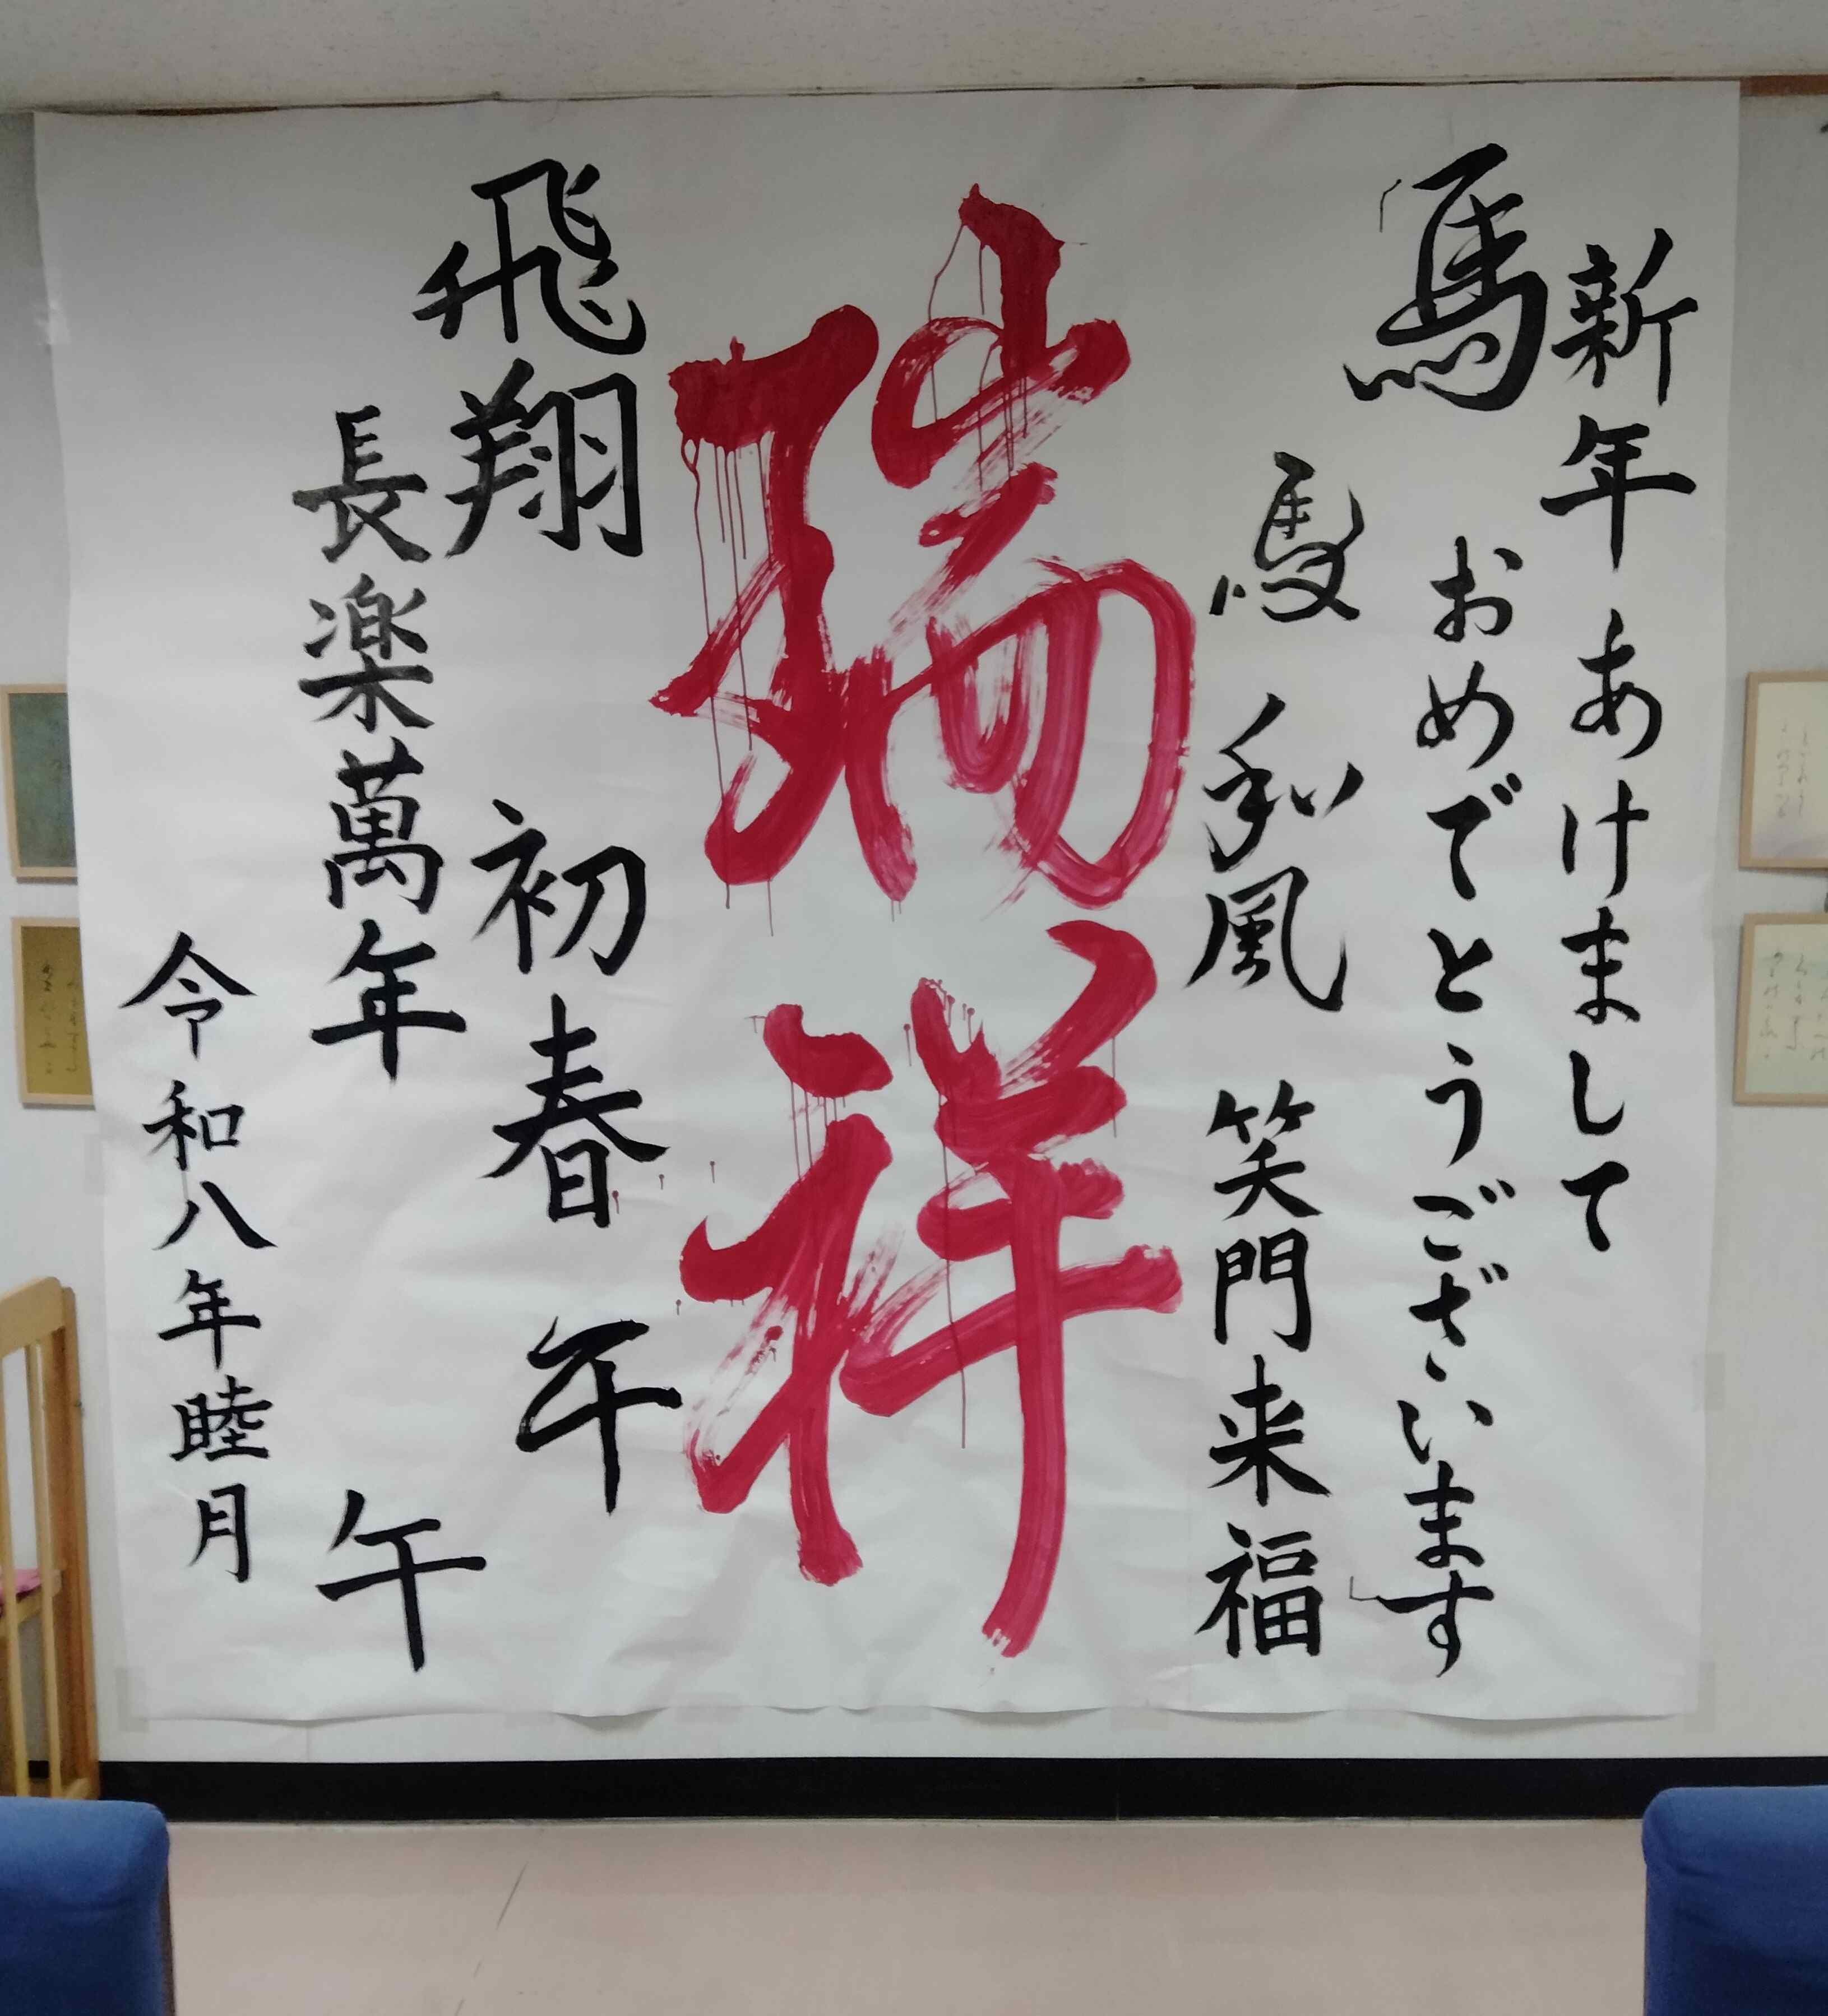 新年 あけまして
馬 おめでとうございます
馬 和風 笑門来福
瑞祥
飛翔 初春 午
長楽萬年 午
令和八年睦月